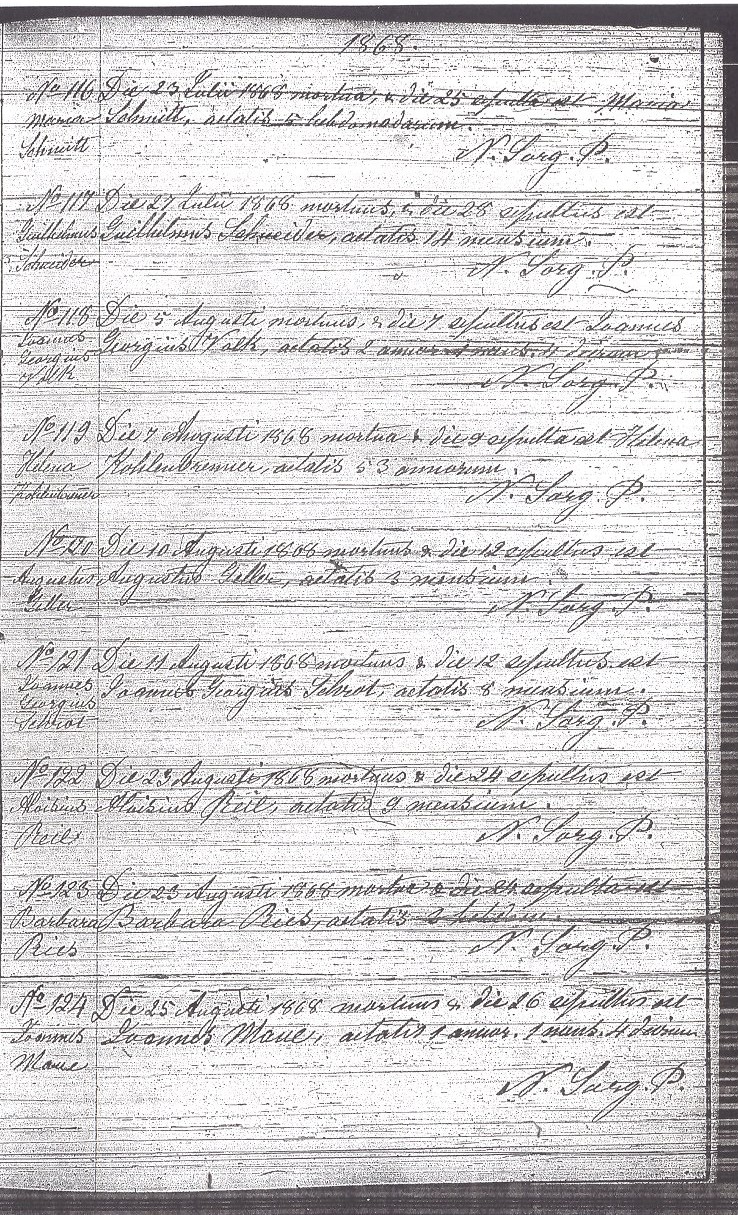 1868.
No 116 Die 23 Julii 1868 mortua, & die 25 sepulta est Maria
Maria Schmitt, aetatis 5 hebdomadarum.
Schmitt N. Sorg. P.
No 117 Die 27 Julii 1868 mortuus, & die 28 sepultus est
Guilhelmus Guilhelmus Schneider, aetatis 14 mensium.
Schneider N. Sorg. P.
No 118 Die 5 Augusti mortuus, & die 7 sepultus est Joannes
Joannes
Georgius Georgius Volk, aetatis 2 annor. 1 mens. 4 dierum
Volk N. Sorg. P.
No 119 Die 7 Augusti 1868 mortua & die 9 sepulta est Helena
Helena Kohlenbremer, aetatis 53 annorum.
Kohlenbremer N. Sorg. P.
No 120 Die 10 Augusti 1868 mortuus & die 12 sepultus est
Augustus Augustus Geller, aetatis 3 mensium.
Geller N. Sorg. P.
No 121 Die 11 Augusti 1868 mortuus & die 12 sepultus est
Joannes Joannes Georgius Schrot, aetatis 8 mensium.
Georgius
Schrot N. Sorg. P.
No 122 Die 23 Augusti 1868 mortuus & die 24 sepultus est
Aloisius Aloisius Reil, aetatis 9 mensium.
Reil N. Sorg. P.
No 123 Die 23 Augusti 1868 mortua & die 24 sepulta est
Barbara Barbara Ries, aetatis 3 hebdom.
Ries N. Sorg. P.
No 124 Die 25 Augusti 1868 mortuus & die 26 sepultus est
Joannes Joannes Maue, aetatis 1 annor. 1 mens. 4 dierum
Maue
N. Sorg. P.